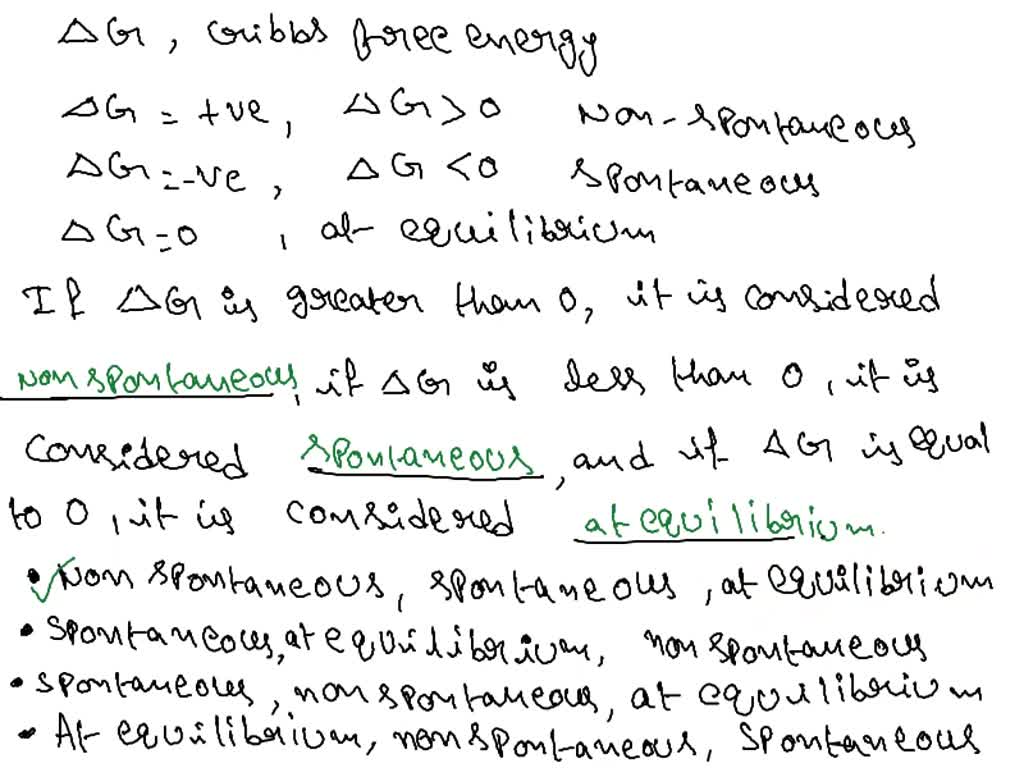 ΔG, Gibbs free energy
ΔG = +ve, ΔG > 0 Non-spontaneous
ΔG = -ve, ΔG < 0 spontaneous
ΔG = 0, at equilibrium
If ΔG is greater than 0, it is considered
nonspontaneous, if ΔG is less than 0, it is
considered spontaneous, and if ΔG is equal
to 0, it is considered at equilibrium.
• Non spontaneous, spontaneous, at equilibrium
• spontaneous, at equilibrium, non spontaneous
• spontaneous, non spontaneous, at equilibrium
• At equilibrium, non spontaneous, spontaneous